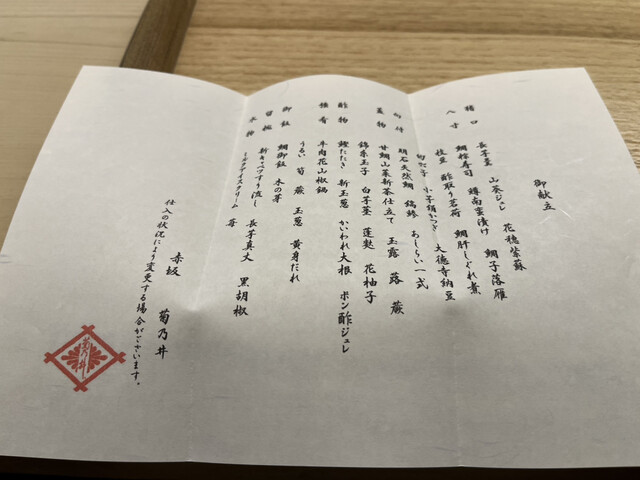 御献立
猪口 長芋羹 山葵ジュレ 花穂紫蘇
八寸 鯛粽寿司 蛮漬け 鯛子落雁
枝豆 酢取り茗荷 鯛肝しぐれ煮
大徳寺納豆
向付 明石天然鯛 あしらい一式
蓋物 甘鯛山菜新茶仕立て 玉露 蕗 蕨
錦糸玉子 白芋茎 蓮麩 花柚子
酢物 鰹たたき 新玉葱 かいわれ大根 ポン酢ジュレ
強肴 牛肉花山椒鍋
うるい 筍 蕨 玉葱 黄身だれ
御飯 鯛御飯 木の芽
留椀 新キャベツすり流し 長芋真丈 黒胡椒
水物 ミルクアイスクリーム 苺
赤坂 菊乃井
仕入の状況により変更する場合がございます。
菊乃井